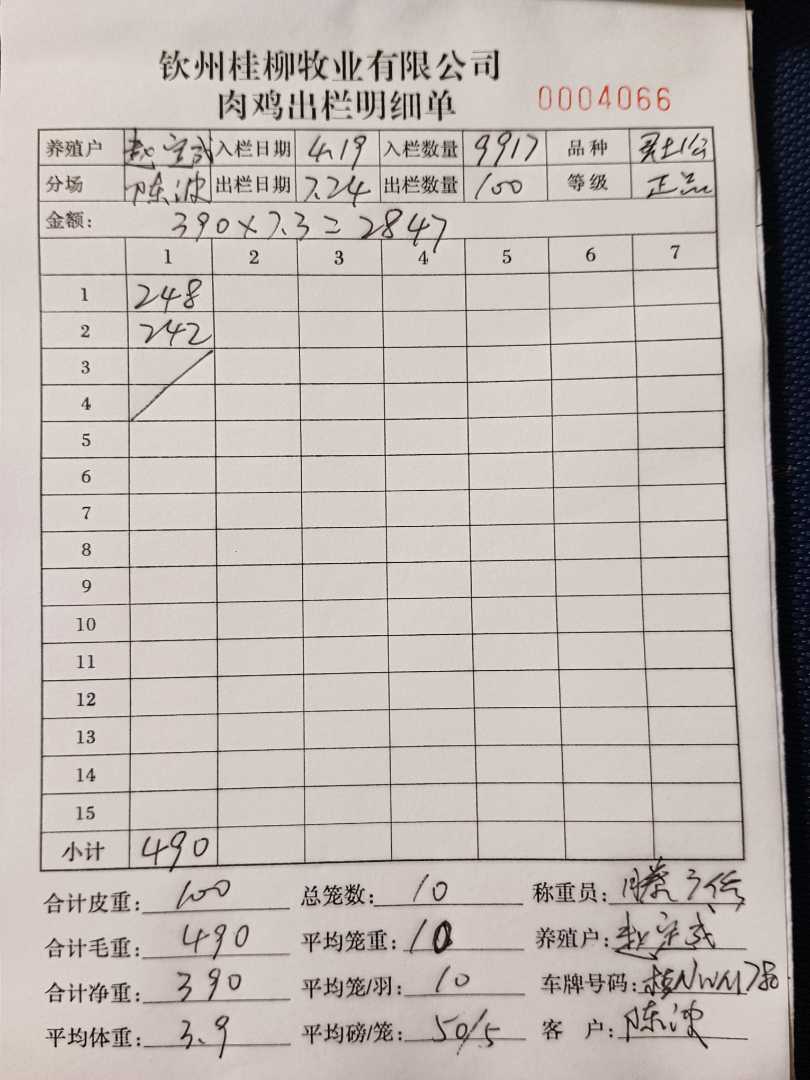 钦州桂柳牧业有限公司
肉鸡出栏明细单 0004066
养殖户 赵宝武 入栏日期 4.19 入栏数量 9917 品种
分场 陈波 出栏日期 7.24 出栏数量 100 等级 正品
金额: 390×7.3=2847
1 2 3 4 5 6 7
1 248
2 242
3
4
5
6
7
8
9
10
11
12
13
14
15
小计 490
合计皮重: 100 总笼数: 10 称重员:
合计毛重: 490 平均笼重: 10 养殖户: 赵宝武
合计净重: 390 平均笼/羽: 10 车牌号码:
平均体重: 3.9 平均磅/笼: 50/5 客 户: 陈波